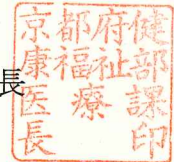 長
京都府健
康福祉部
医療課
長印